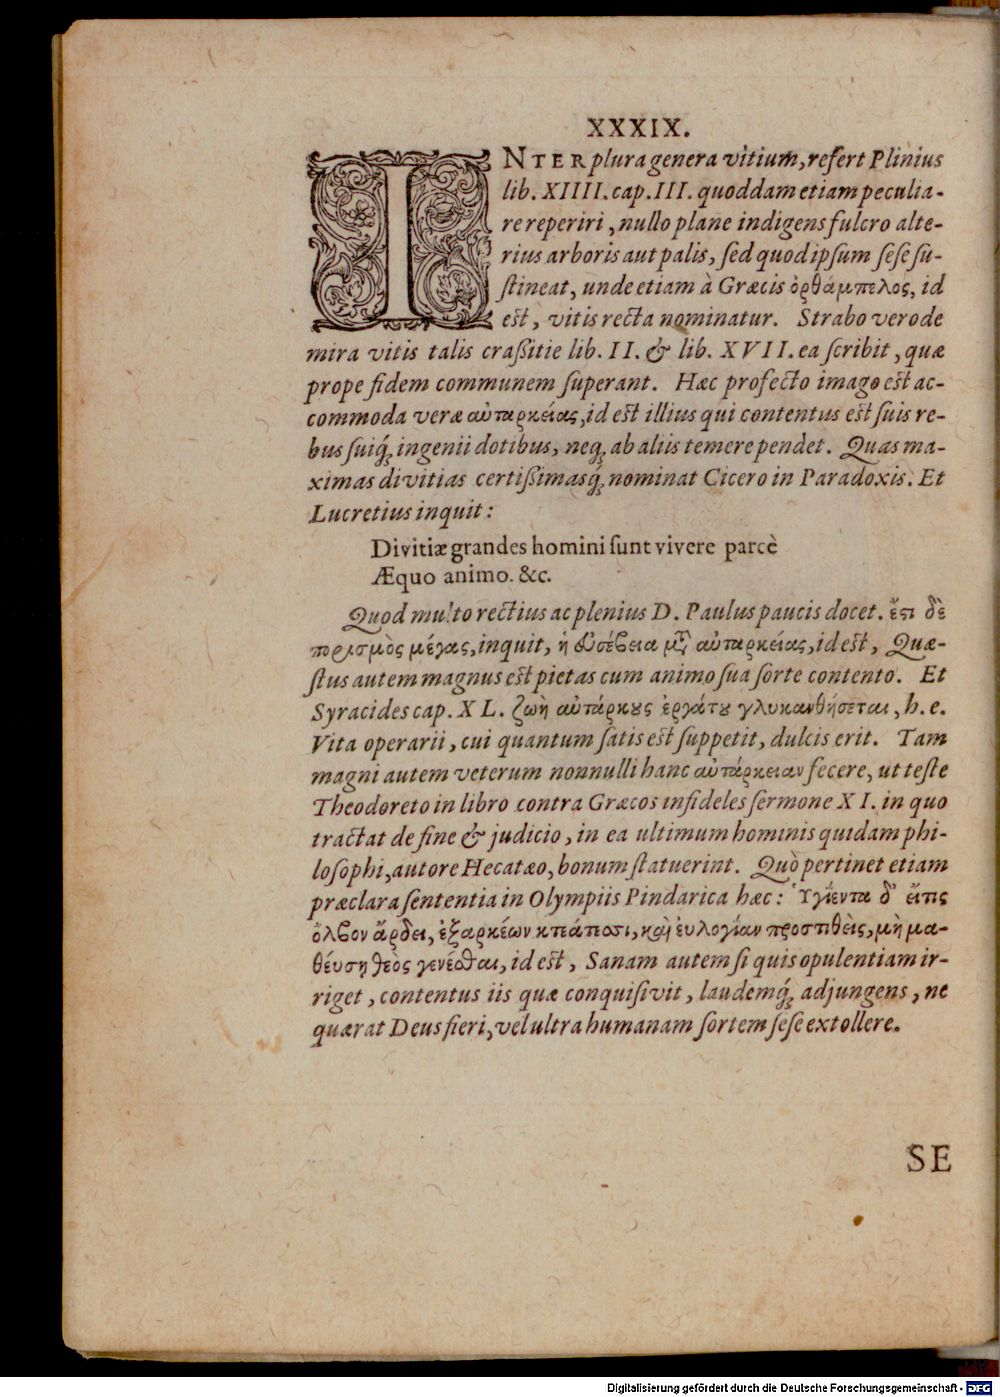 XXXIX.
INTER plura genera vitium, refert Plinius
lib. XIIII. cap. III. quoddam etiam peculia-
re reperiri, nullo plane indigens fulcro alte-
rius arboris aut palis, sed quod ipsum sese su-
stineat, unde etiam à Græcis ὀρθάμπελος, id
est, vitis recta nominatur. Strabo vero de
mira vitis talis crassitie lib. II. & lib. XVII. ea scribit, quæ
prope fidem communem superant. Hæc profecto imago est ac-
commoda veræ αὐταρκείας, id est illius qui contentus est suis re-
bus suiq́ꝫ ingenii dotibus, neqꝫ ab aliis temere pendet. Quas ma-
ximas divitias certissimasq́ꝫ nominat Cicero in Paradoxis. Et
Lucretius inquit:
Divitiæ grandes homini sunt vivere parcè
Æquo animo. &c.
Quod multo rectius ac plenius D. Paulus paucis docet. ἔστι δὲ
πορισμὸς μέγας, inquit, ἡ ἐυσέβεια μετ' αὐταρκείας, id est, Quæ-
stus autem magnus est pietas cum animo sua sorte contento. Et
Syracides cap. XL. ζωὴ αὐτάρκους ἐργάτου γλυκανθήσεται, h. e.
Vita operarii, cui quantum satis est suppetit, dulcis erit. Tam
magni autem veterum nonnulli hanc αὐτάρκειαν fecere, ut teste
Theodoreto in libro contra Græcos infideles sermone XI. in quo
tractat de fine & judicio, in ea ultimum hominis quidam phi-
losophi, autore Hecatæo, bonum statuerint. Quò pertinet etiam
præclara sententia in Olympiis Pindarica hæc: Ὑγίεντα δ' εἴτις
ὄλβον ἄρδει, ἐξαρκέων κτεάτεσσι, καὶ ἐυλογίαν προστιθεὶς, μὴ μα-
θέυσῃ θεὸς γενέσθαι, id est, Sanam autem si quis opulentiam ir-
riget, contentus iis quæ conquisivit, laudemq́ꝫ adjungens, ne
quærat Deus fieri, vel ultra humanam sortem sese extollere.
SE
Digitalisierung gefördert durch die Deutsche Forschungsgemeinschaft - DFG